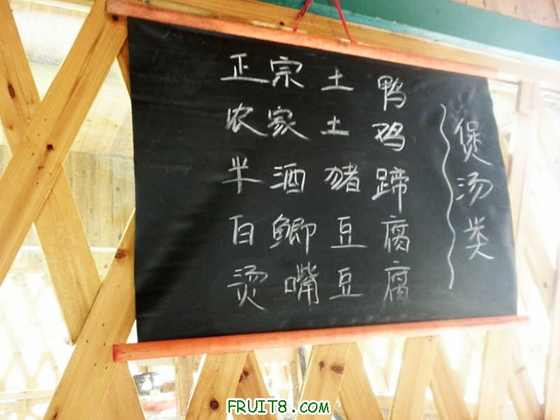 煲汤类
正宗土鸭
农家土鸡
半酒猪蹄
白鲫豆腐
烫嘴豆腐
FRUIT8.COM